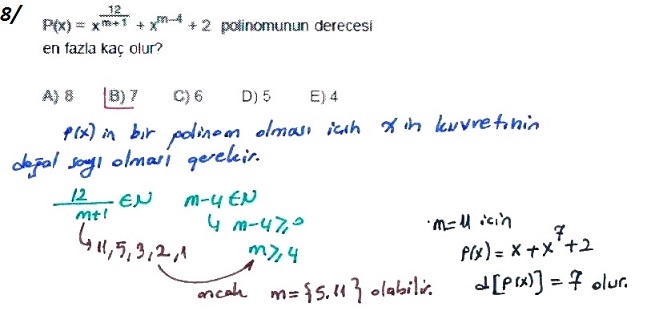 8/
P(x) = x^{12/(m+1)} + x^{m-4} + 2 polinomunun derecesi
en fazla kaç olur?
A) 8 B) 7 C) 6 D) 5 E) 4
P(x) in bir polinom olması için x in kuvvetinin
doğal sayı olması gerekir.
12/(m+1) ∈ N m-4 ∈ N
↳ m-4 ⩾ 0
↳ 11, 5, 3, 2, 1 m ⩾ 4
ancak m = {5.11} olabilir.
m=11 için
P(x) = x + x^7 + 2
d[P(x)] = 7 olur.